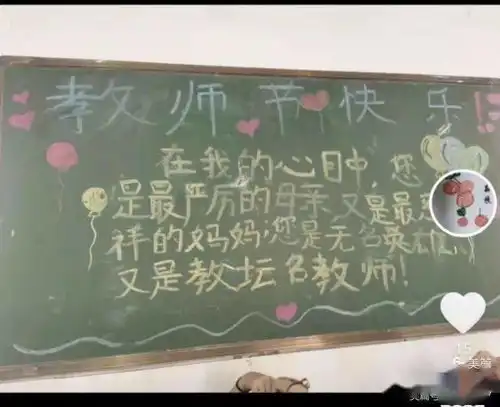 教师节快乐!
在我的心目中,您
是最严厉的母亲又是最
祥的妈妈;您是无名英雄,
又是教坛名教师!
美篇